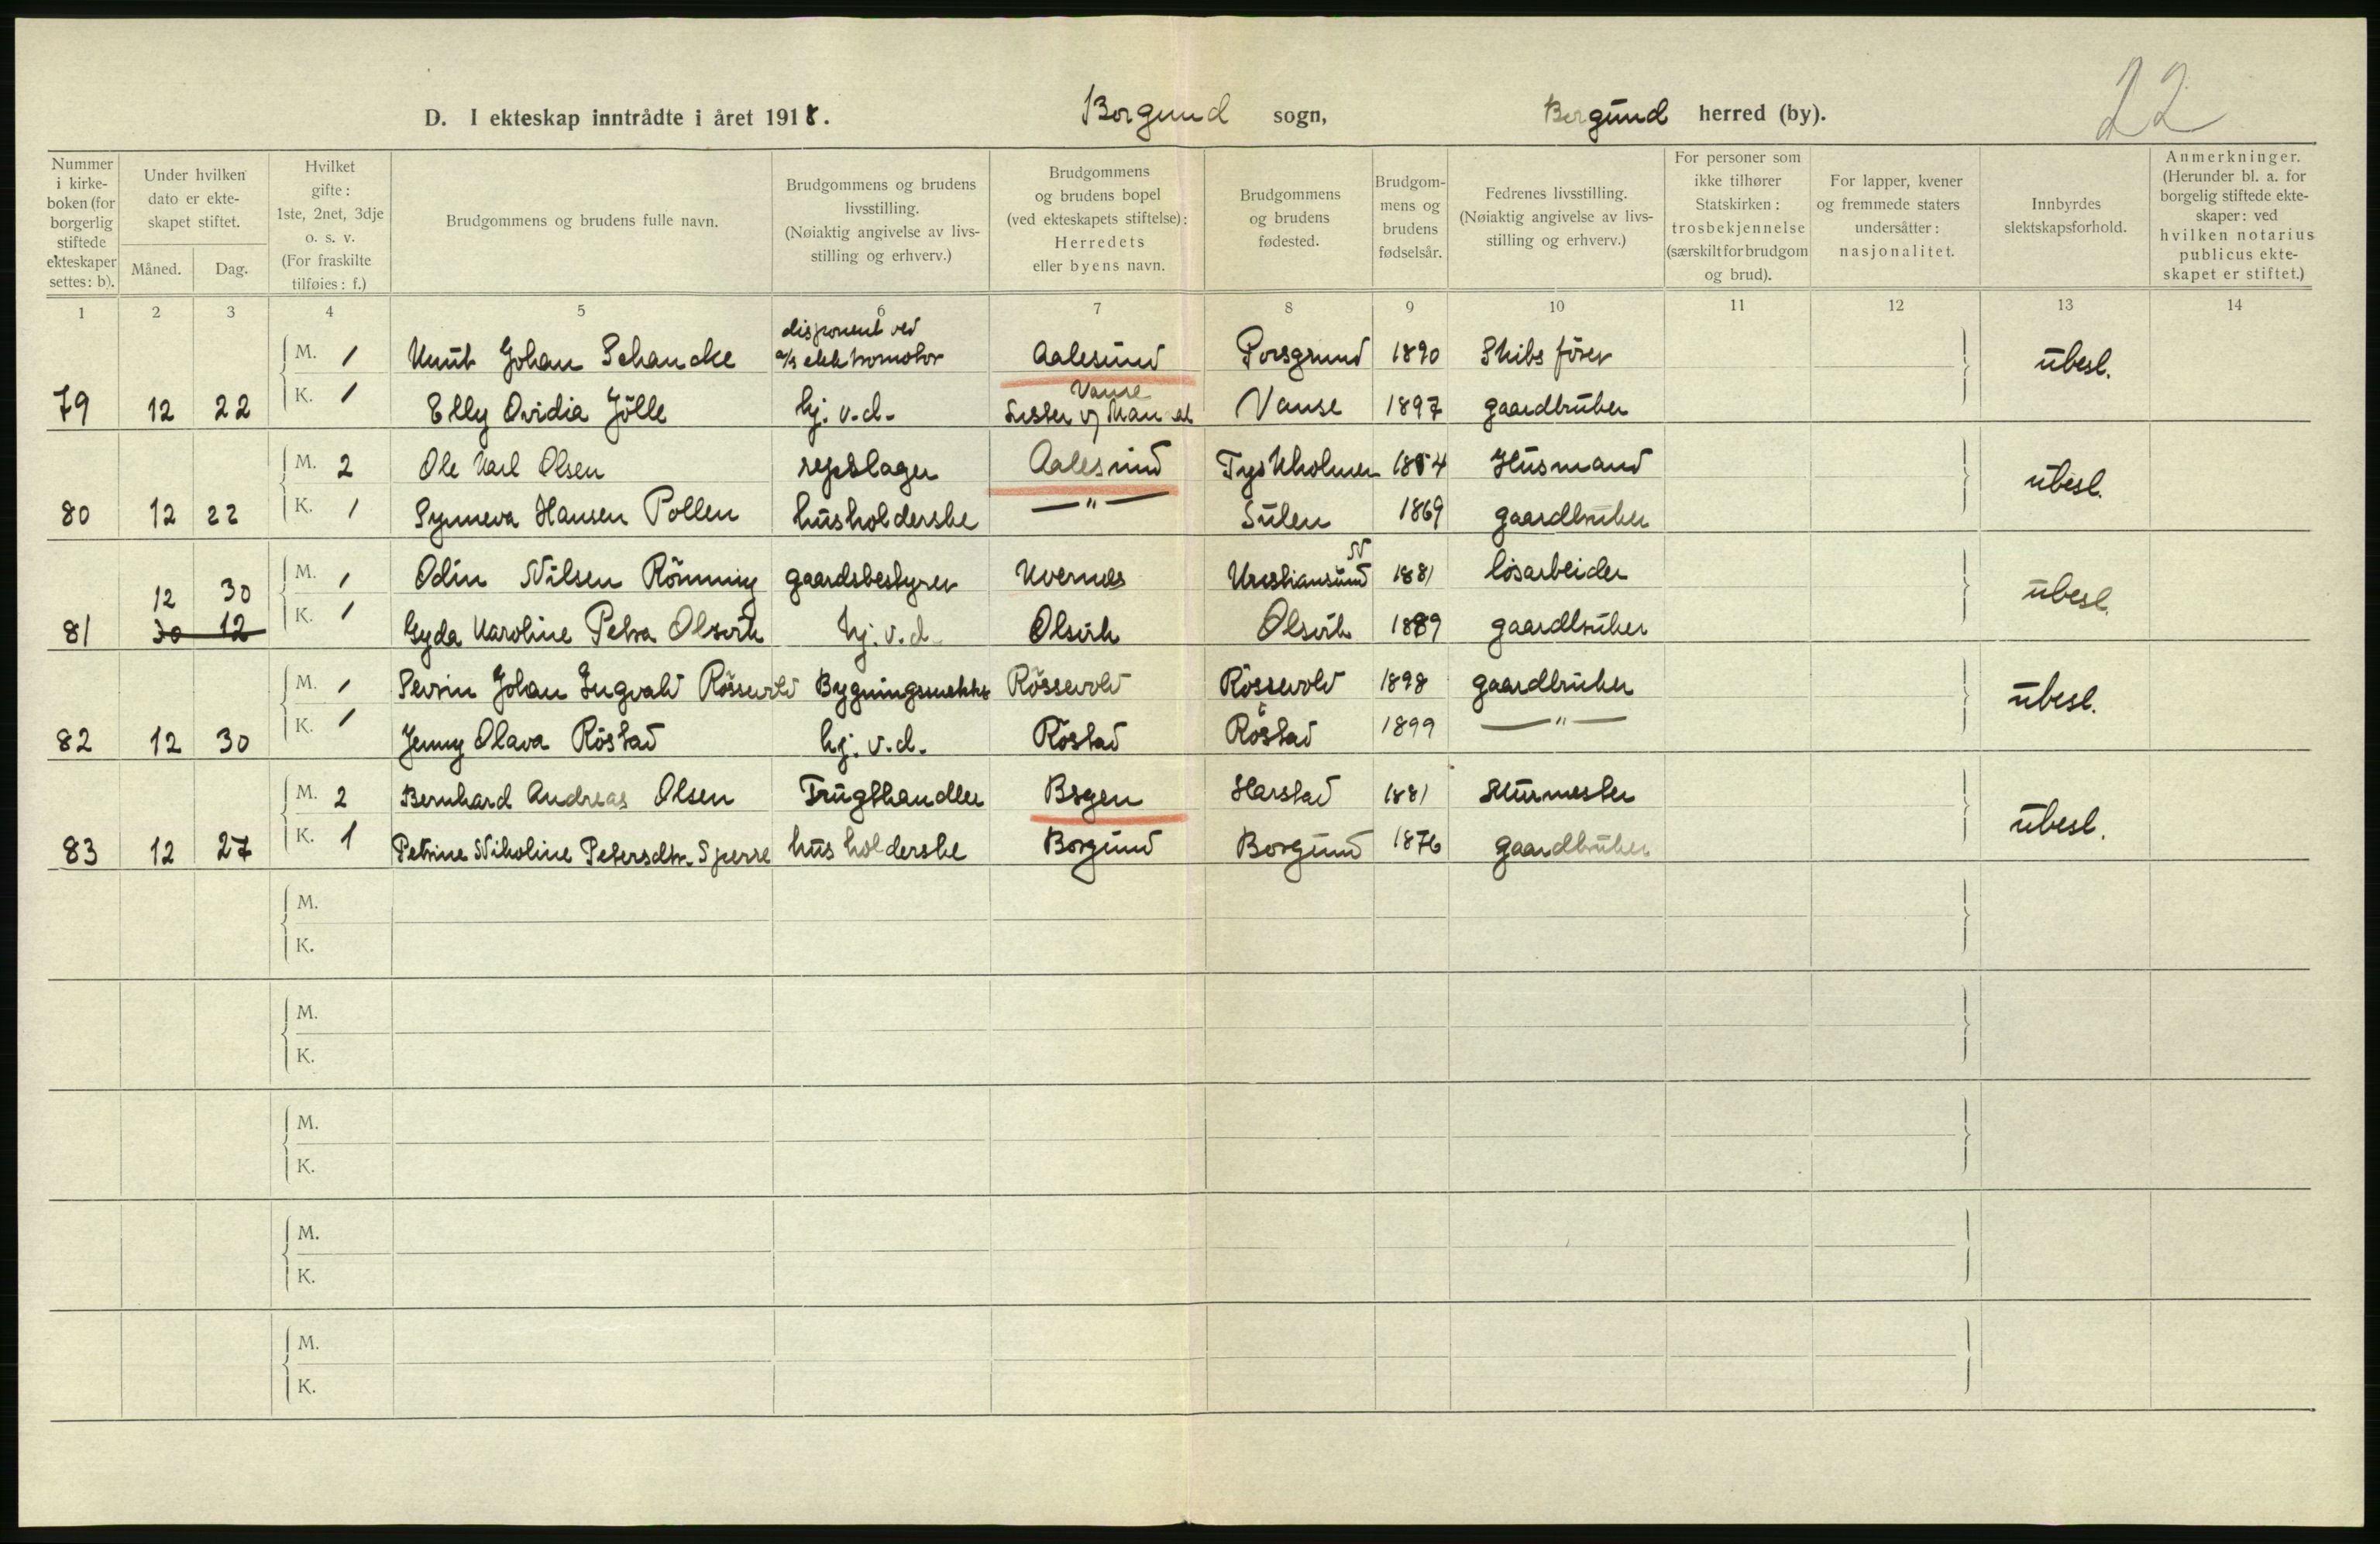 22
D. I ekteskap inntrådte i året 1918. Borgund sogn, Borgund herred (by).
Nummer i kirkeboken (for borgerlig stiftede ekteskaper settes: b). | Under hvilken dato er ekteskapet stiftet. Måned. Dag. | Hvilket gifte: 1ste, 2net, 3dje o. s. v. (For fraskilte tilføies: f.) | Brudgommens og brudens fulle navn. | Brudgommens og brudens livsstilling. (Nøiaktig angivelse av livsstilling og erhverv.) | Brudgommens og brudens bopel (ved ekteskapets stiftelse): Herredets eller byens navn. | Brudgommens og brudens fødested. | Brudgommens og brudens fødselsår. | Fedrenes livsstilling. (Nøiaktig angivelse av livsstilling og erhverv.) | For personer som ikke tilhører Statskirken: trosbekjennelse (særskilt for brudgom og brud). | For lapper, kvener og fremmede staters undersåtter: nasjonalitet. | Innbyrdes slektskapsforhold. | Anmerkninger. (Herunder bl. a. for borgelig stiftede ekteskaper: ved hvilken notarius publicus ekteskapet er stiftet.)
1 2 3 4 5 6 7 8 9 10 11 12 13 14
M. 1 Knut Johan Schancke disponent ved a/s elektromotor Aalesund Porsgrund 1890 Skibsfører ubesl.
79 12 22 K. 1 Elly Ovidia Jölle hj. v. d. Vanse Lister og Mandal Vanse 1897 gaardbruker
M. 2 Ole Karl Olsen repslager Aalesund Tyskholmen 1854 Husmand ubesl.
80 12 22 K. 1 Synneva Hansen Pollen husholderske —"— Sulen 1869 gaardbruker
12 30 M. 1 Odin Nilsen Rönning gaardsbestyrer Kvernes Kristiansund N 1881 løsarbeider ubesl.
81 30 12 K. 1 Gyda Karoline Petra Olsvik hj. v. d. Olsvik Olsvik 1889 gaardbruker
M. 1 Sevrin Johan Ingvald Rössevold Bygningsnekker Rössevold Rössevold 1898 gaardbruker ubesl.
82 12 30 K. 1 Jenny Olava Röstad hj. v. d. Röstad Röstad 1899 —"—
M. 2 Bernhard Andreas Olsen Frugthandler Bergen Harstad 1881 Murmester ubesl.
83 12 27 K. 1 Petrine Nikoline Petersdtr. Sperre husholderske Borgund Borgund 1876 gaardbruker
M.
K.
M.
K.
M.
K.
M.
K.
M.
K.